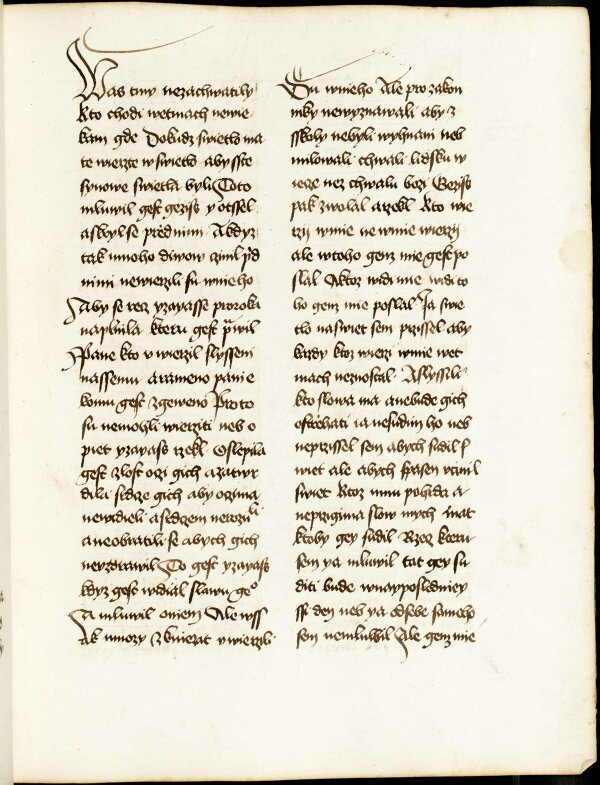 Was tmy nezachwatily
Kto chodi wetmach newie
kam gde Dokudz swietlo ma
te wierzte wswietlo abysste
synowe swietla byli Toto
mluwil gest gezis y otssel
askryl se przed nimi Akdyz
tak mnoho diwow czinil prd
nimi newierzili su wnieho
Aby se recz yzayasse proroka
naplnila kteru gest prwil
Pane kto vwierzil slysseni
nassemu arameno panie
komu gest zgeweno Proto
su nemohli wierziti neb o
piet yzayass rzekl Oslepila
gest zlost oczi gich azatwr
dila srdcze gich aby oczima
newidieli asrdczem nerozu li
aneobratili se abych gich
nevzdrawil To gest yzayass
kdyz gest widial slawu geo
A mluwil oniem Ale wss
ak mnozy zkniezat vwierzili
Su wnieho Ale pro zakon
niky newyznawali aby z
sskoly nebyli wyhnani neb
milowali chwalu lidsku w
iecze nez chwalu bozi Gezis
pak zwolal arzekl Kto wie
rzij wmie ne wmie wierzij
ale wtoho genz mie gest po
slal Aktoz widi mie widi to
ho genz mie poslal Ja swie
tlo naswiet sem przissel aby
kazdy ktoz wierzi wmie wet
mach neznostal Aslysseli
kto slowa ma anebude gich
ostrzehati ia nesudim ho neb
neprzissel sem abych sudil s
wiet ale abych spasen vczinil
swiet Ktoz mnu pohrda a
neprzigima slow mych mat
ktoby gey sudil Rzecz kteru
sem ya mluwil tat gey su
diti bude wnayposledniey
ssi den neb ya odsebe sameho
sem nemluwil Ale genz mie